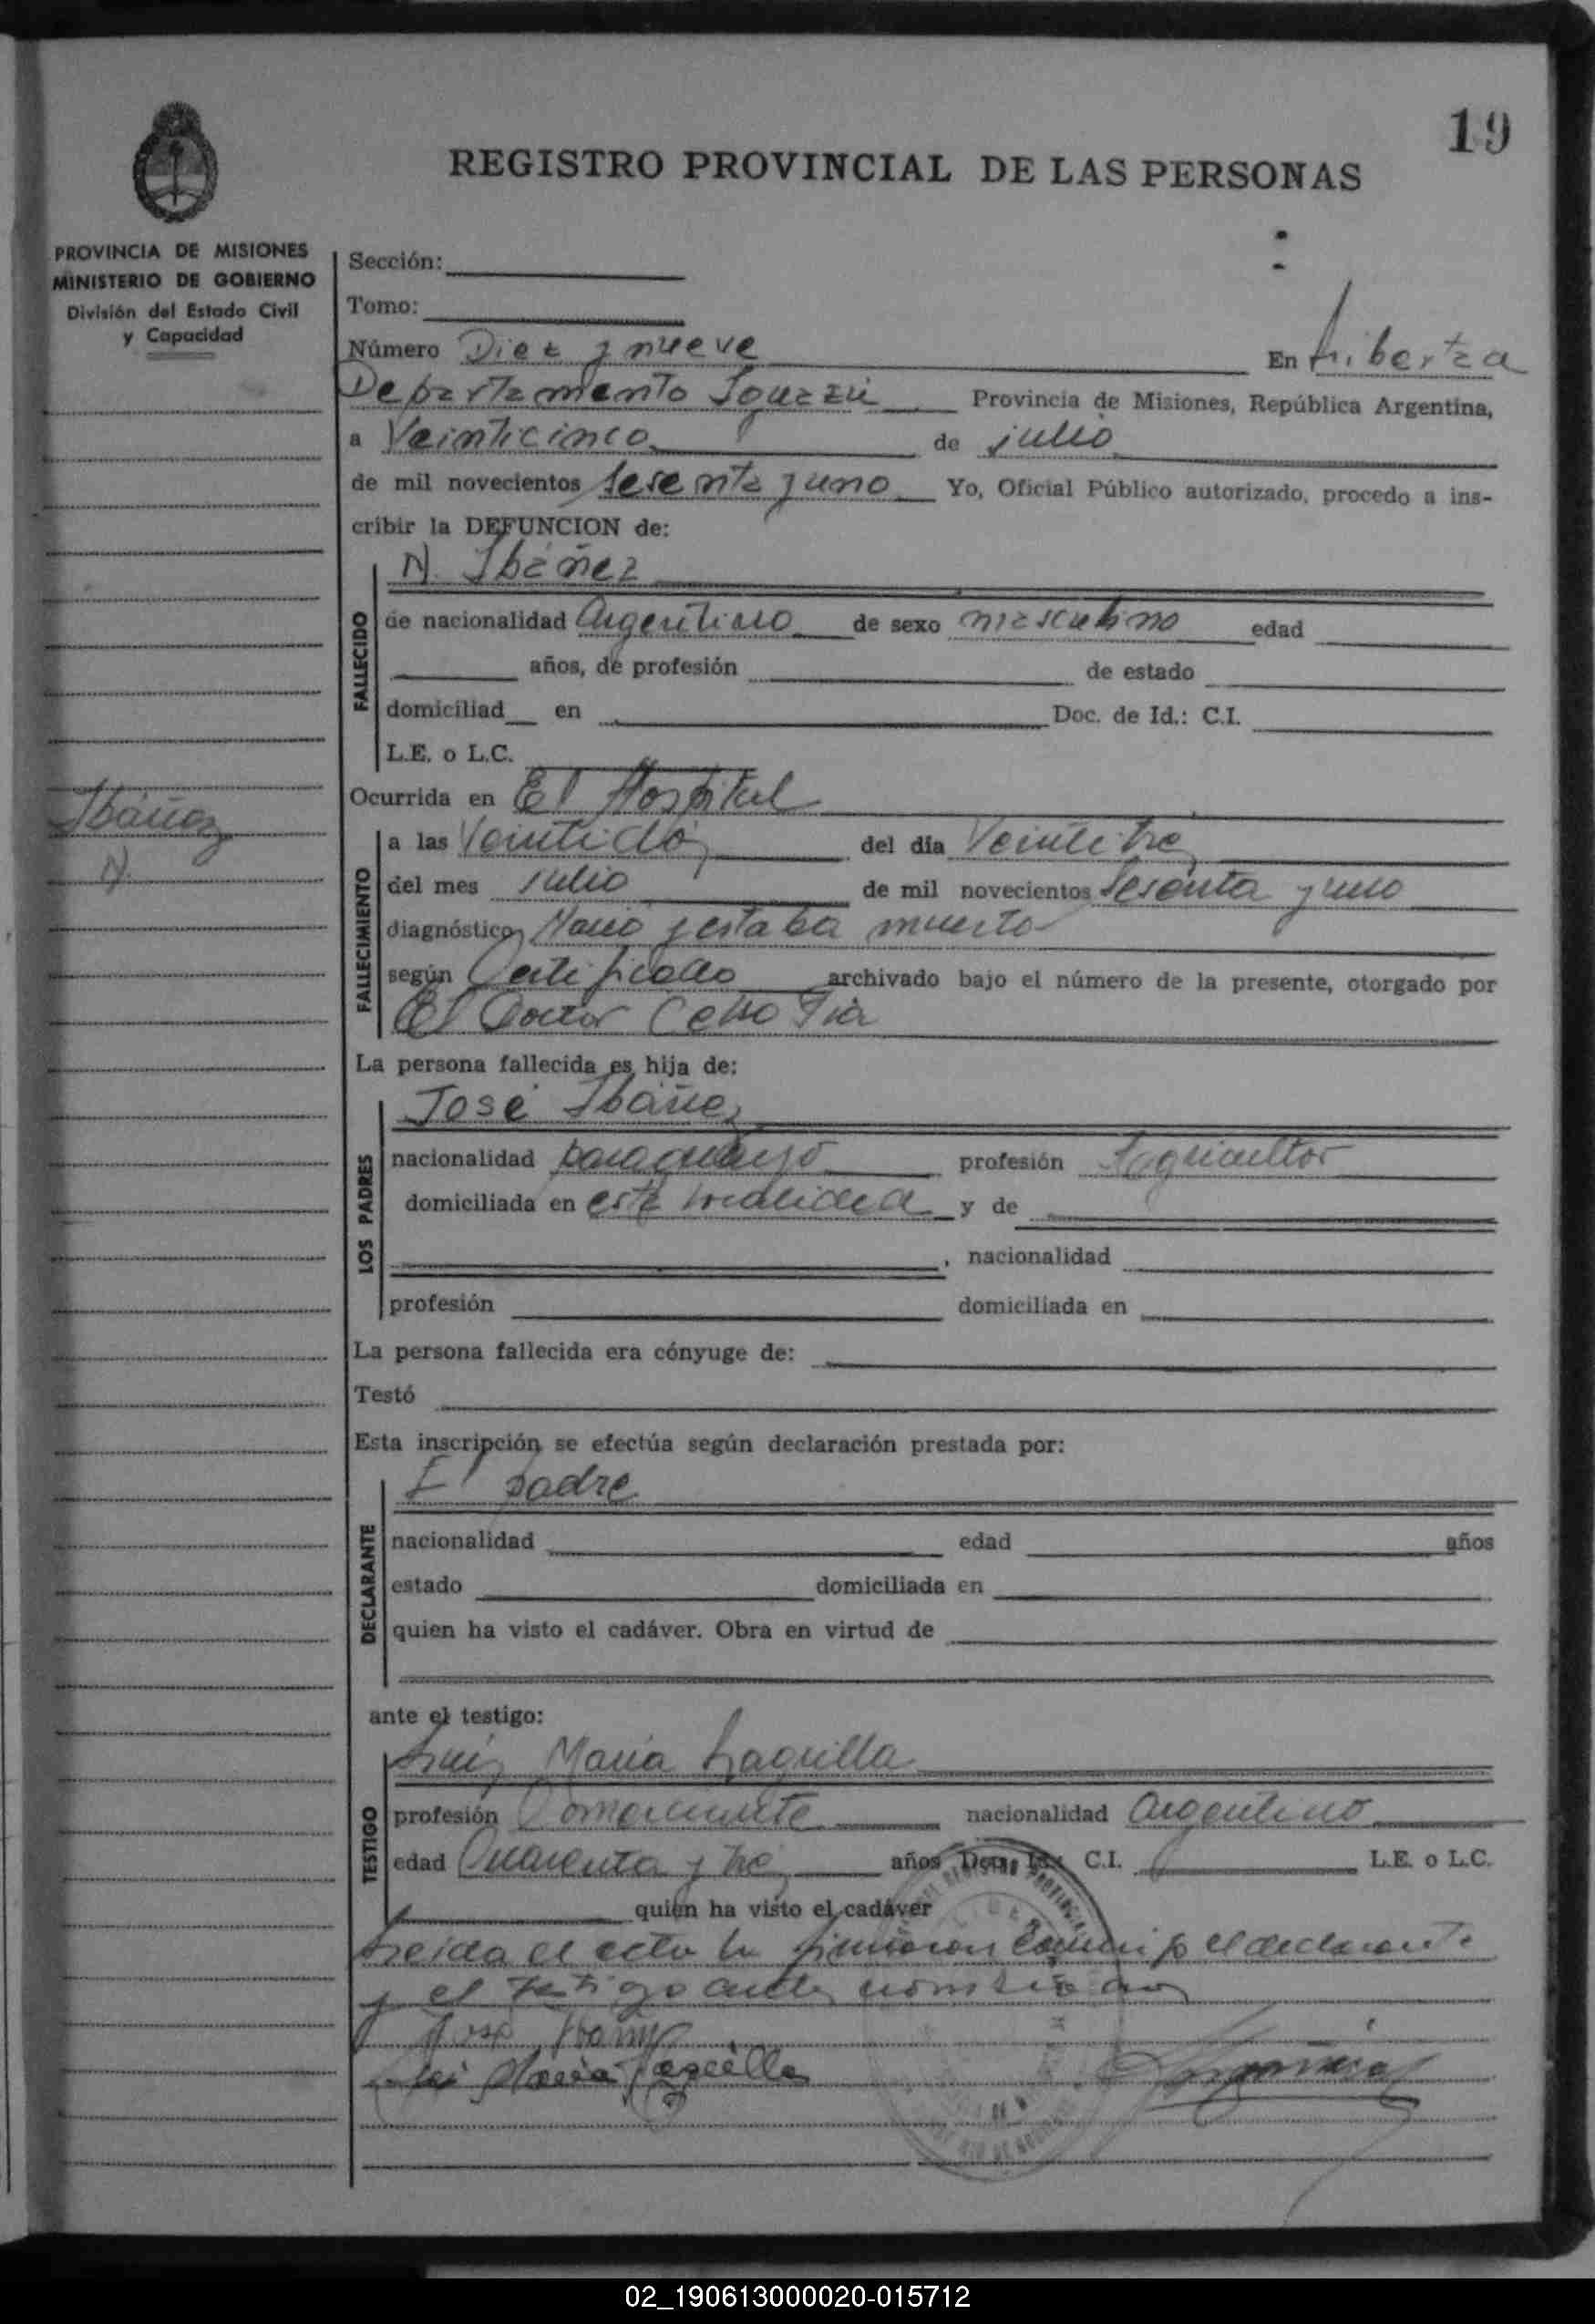 19
REGISTRO PROVINCIAL DE LAS PERSONAS
PROVINCIA DE MISIONES
MINISTERIO DE GOBIERNO
División del Estado Civil
y Capacidad
Sección:
Tomo:
Número Diez y nueve En Libertad
Departamento Iguazú Provincia de Misiones, República Argentina,
a Veinticinco de julio
de mil novecientos sesenta y uno Yo, Oficial Público autorizado, procedo a ins-
cribir la DEFUNCION de:
N. Ibáñez
FALLECIDO
de nacionalidad Argentino de sexo masculino edad
años, de profesión de estado
domiciliad en Doc. de Id.: C.I.
L.E. o L.C.
Ocurrida en El Hospital
Ibáñez
N.
FALLECIMIENTO
a las Veintidós del día Veintitrés
del mes julio de mil novecientos Sesenta y uno
diagnóstico Nació y estaba muerto
según Certificado archivado bajo el número de la presente, otorgado por
El Doctor Celso
La persona fallecida es hija de:
LOS PADRES
José Ibáñez
nacionalidad paraguayo profesión Agricultor
domiciliada en esta localidad y de
, nacionalidad
profesión domiciliada en
La persona fallecida era cónyuge de:
Testó
Esta inscripción se efectúa según declaración prestada por:
DECLARANTE
El padre
nacionalidad edad años
estado domiciliada en
quien ha visto el cadáver. Obra en virtud de
ante el testigo:
TESTIGO
Luis María
profesión Comerciante nacionalidad Argentino
edad Cuarenta y tres años Doc. Id. C.I. L.E. o L.C.
quien ha visto el cadáver
Leída el acta la firmaron conmigo el declarante
y el testigo antes nombrados
02_190613000020-015712